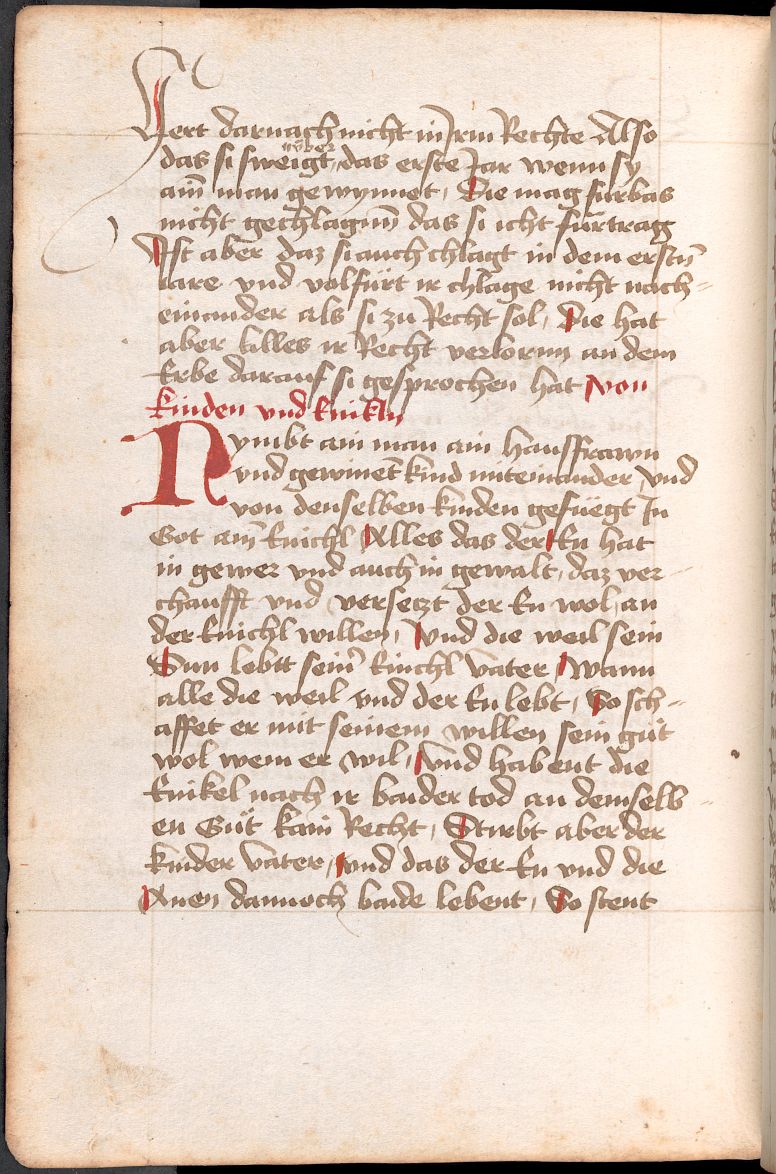 Hert darnach nicht in Irm Rechte Also
das si sweigt über das erste Jar wenn sy
ain̄ man gewynnet, Die mag fürbas
nicht gechlagnn̄ das si icht fürtrag
Ist aber daz si auch chlagt in dem erstn̄
Iare vnd volfürt ir chlage nicht nach-
einander als si zu Recht sol, Die hat
aber alles ir Recht verlornn an dem
Erbe darauf si gesprochen hat von
kinden vnd Enikln
Nymbt ain man ain hausfrawn
vnd gewinet̄ kind miteinander, vnd
von denselben kinden gefüegt In
Got ain̄ Enichl Alles das der En hat
in gewer vnd auch in gewalt, daz ver
chaufft vnd versetzt der En wol, an
der Enichl willen, Vnd die weil sein
Sun lebtt sein̄ Enichl Vater, Wann
alle die weil vnd der En lebt, So sch-
affet er mit seinem willen sein gut
wol wem er wil, Vnd habent die
Enikel nach ir baider tod an demselb-
en Güt kain Recht, Sturbt aber der
kinder Vater, vnd das der En vnd die
Anen dannoch baide lebent, So stent